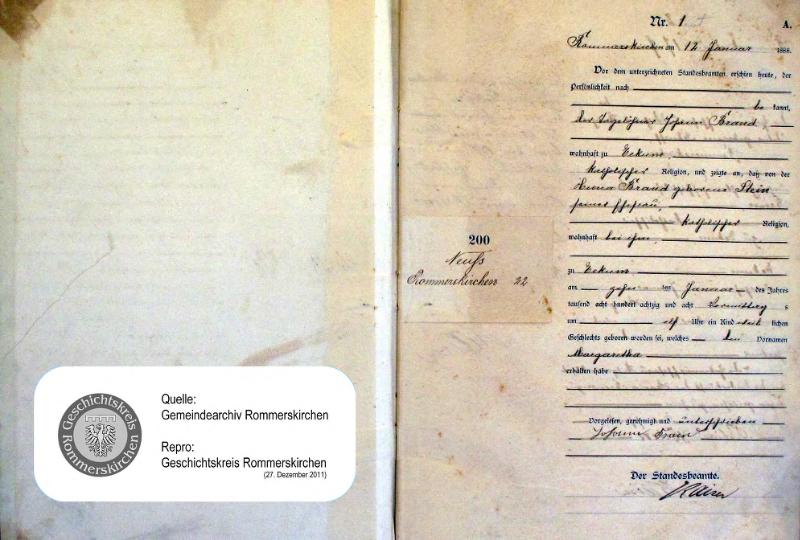 Geschichtskreis
Rommerskirchen
Quelle:
Gemeindearchiv Rommerskirchen
Repro:
Geschichtskreis Rommerskirchen
(27. Dezember 2011)
200
Neuß
Rommerskirchen 22
Nr. 1
A.
Rommerskirchen am 12 Januar 1888.
Vor dem unterzeichneten Standesbeamten erschien heute, der
Persönlichkeit nach
be kannt,
der Tagelöhner Johann Brand
wohnhaft zu Eckum,
katholischer Religion, und zeigte an, daß von der
Anna Brand geborene
seiner Ehefrau,
katholischer Religion,
wohnhaft bei ihm
zu Eckum
am zehn ten Januar des Jahres
tausend acht hundert achtzig und acht
um elf Uhr ein Kind weib lichen
Geschlechts geboren worden sei, welches den Vornamen
Margaretha
erhalten habe
Vorgelesen, genehmigt und unterschrieben
Johann
Der Standesbeamte.